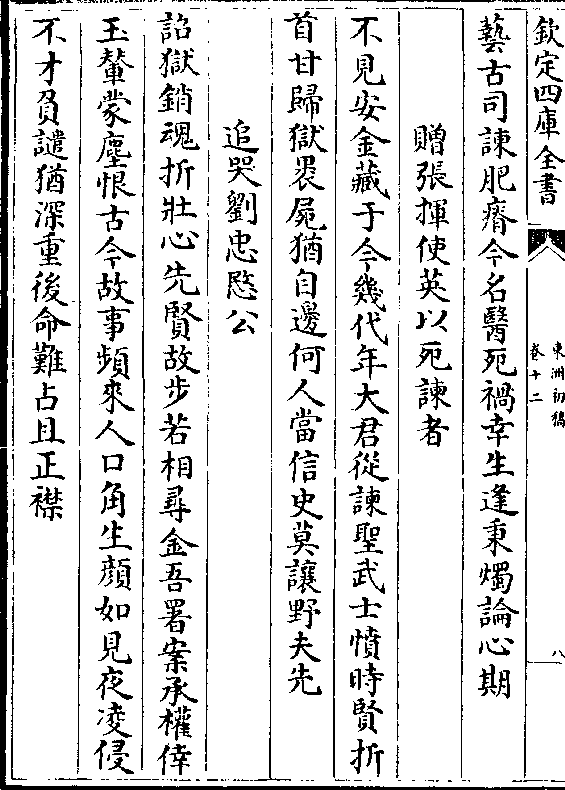 欽定四庫全書
東洲初稿
卷十二
八
藝古司諫肥瘠今名醫死禍幸生逢秉燭論心期
贈張揮使英以死諫者
不見安金藏于今幾代年大君從諫聖武士憤時賢折
首甘歸獄褁屍猶自邊何人當信史莫讓野夫先
追哭劉忠愍公
詔獄銷魂折壯心先賢故步若相尋金吾署案承權倖
玉輦蒙塵恨古今故事頻來人口角生顏如見夜凌侵
不才負譴猶深重後命難占且正襟